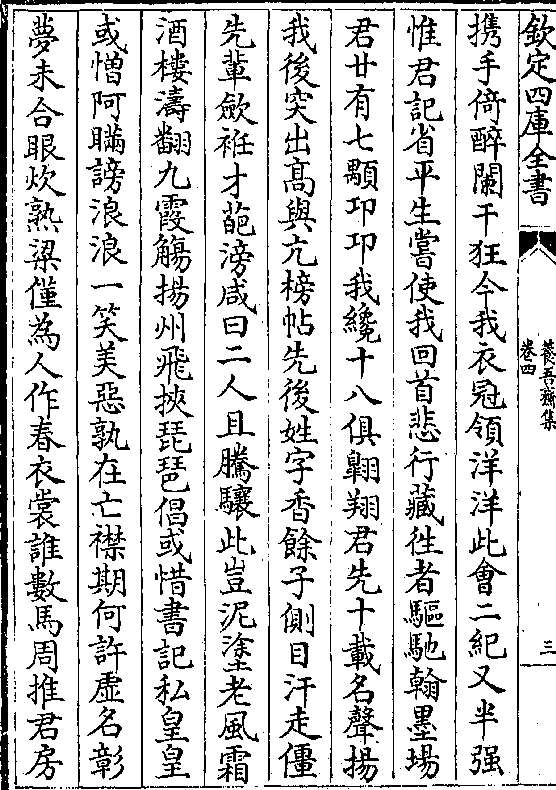 欽定四庫全書
養吾齋集
卷四
三
攜手倚醉闌干狂今我衣冠領洋洋此會二紀又半强
惟君記省平生嘗使我回首悲行藏徃者驅馳翰墨場
君廿有七顒卭卭我纔十八俱翺翔君先十載名聲揚
我後突出髙與亢榜帖先後姓字香餘子側目汗走僵
先輩歛袵才葩滂咸曰二人且騰驤此豈泥塗老風霜
酒樓濤翻九霞觴揚州飛挾琵琶倡或惜書記私皇皇
或憎阿瞞謗浪浪一笑美惡孰在亡襟期何許虚名彰
夢未合眼炊熟粱僅為人作春衣裳誰數馬周推君房